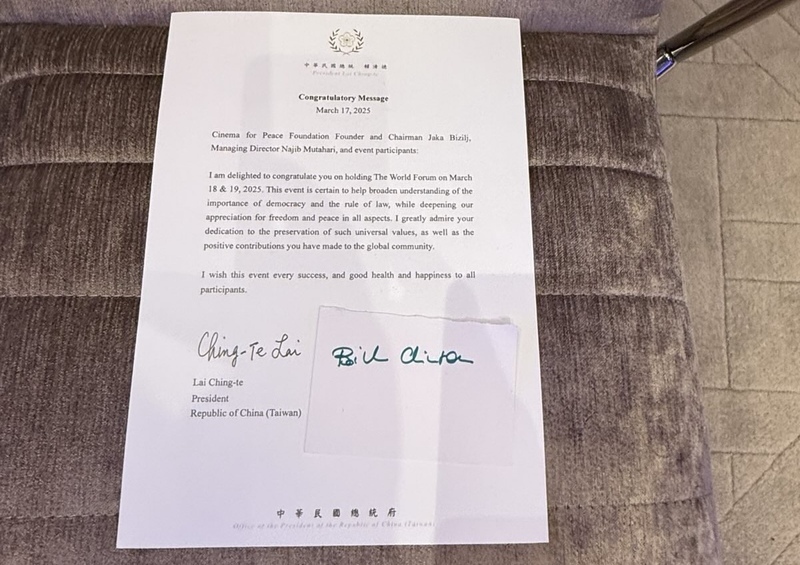 中華民國總統 賴清德
President Lai Ching-te
Congratulatory Message
March 17, 2025
Cinema for Peace Foundation Founder and Chairman Jaka Bizilj,
Managing Director Najib Mutahari, and event participants:
I am delighted to congratulate you on holding The World Forum on March
18 & 19, 2025. This event is certain to help broaden understanding of the
importance of democracy and the rule of law, while deepening our
appreciation for freedom and peace in all aspects. I greatly admire your
dedication to the preservation of such universal values, as well as the
positive contributions you have made to the global community.
I wish this event every success, and good health and happiness to all
participants.
Ching-Te Lai
Bill Clinton
Lai Ching-te
President
Republic of China (Taiwan)
中華民國總統府
Office of the President of the Republic of China (Taiwan)